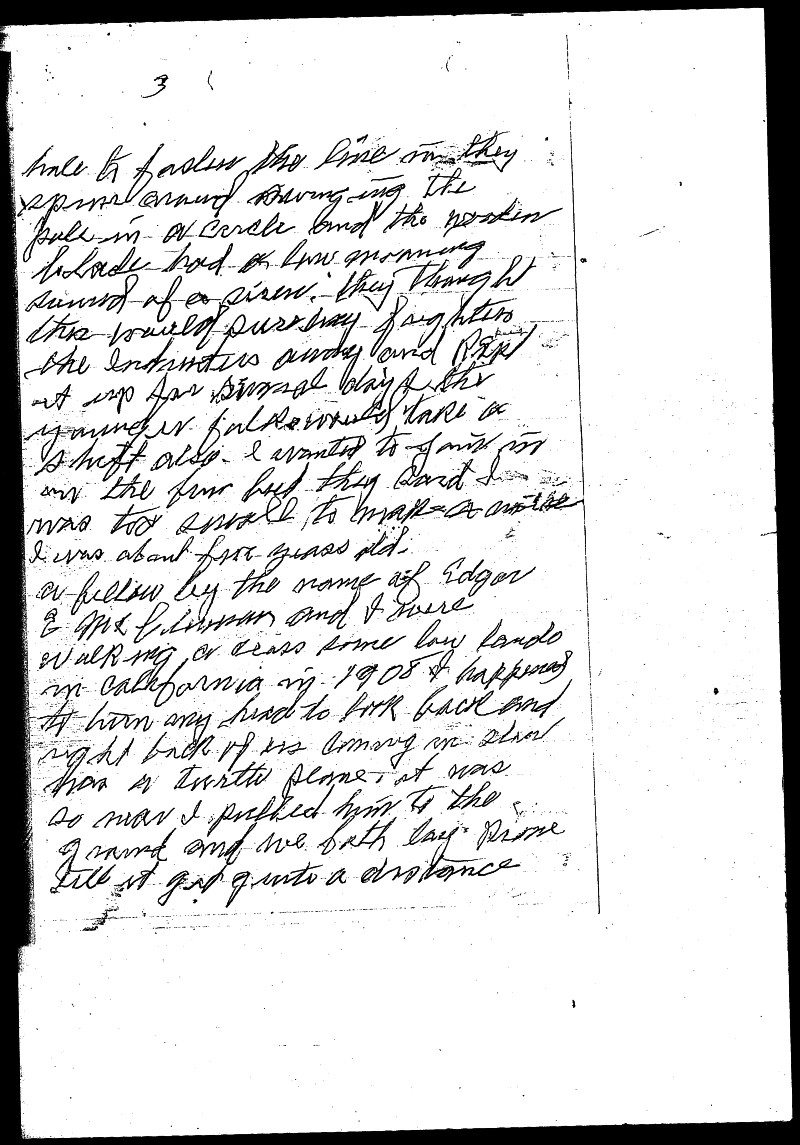 3
hole to fasten the line in they
spun around swinging the
pole in a circle and the wooden
blade had a low moaning
sound of a siren. they thought
this would frighten
the Intruders away and Kept
it up for several days the
younger folks would take a
shift also. I wanted to join in
on the fun but they said I
was too small to make a noise
I was about five years old.
a fellow by the name of Edgar
E and I were
walking a cross some low lands
in california in 1908 I happened
to turn my head to look back and
right back of us coming in slow
was a turtle plane, it was
so near I pulled him to the
ground and we both lay Prone
till it got quite a distance